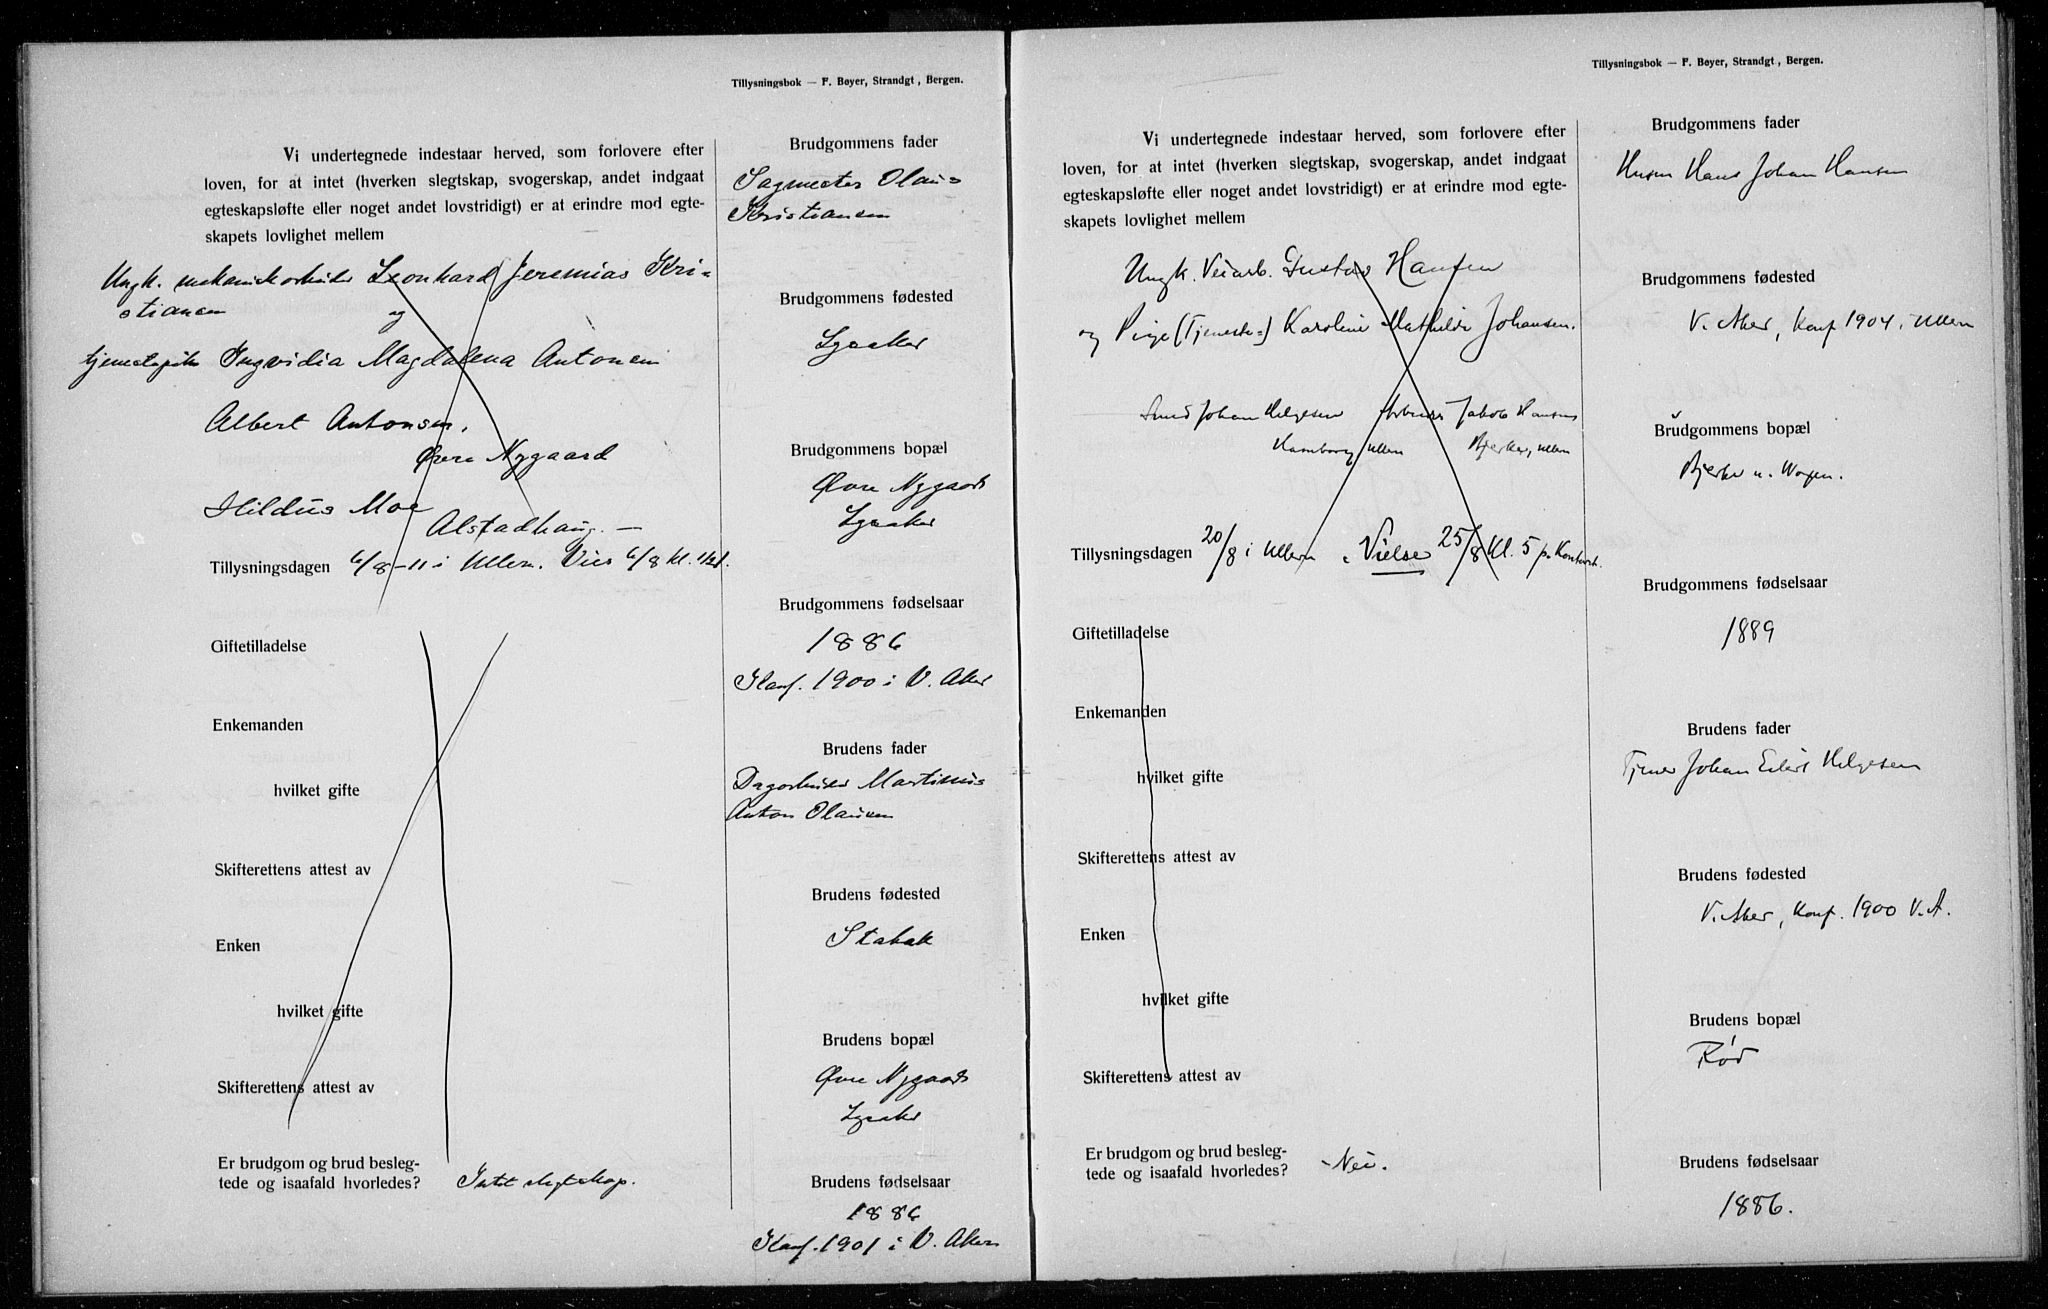 Tillysningsbok — F. Bøyer, Strandgt, Bergen.
Vi undertegnede indestaar herved, som forlovere efter
loven, for at intet (hverken slegtskap, svogerskap, andet indgaat
egteskapsløfte eller noget andet lovstridigt) er at erindre mod egte-
skapets lovlighet mellem
Ungk. mekanikarbeider Leonhard Jeremias Kri-
stiansen og
tjenestepike Ingvidia Magdalena Antonsen
Albert Antonsen,
Øvre Nygaard
Hildus Moe
Alstadhaug. —
Tillysningsdagen 6/8-11 i Ullern. Vies 6/8 Kl.
Giftetilladelse
Enkemanden
hvilket gifte
Skifterettens attest av
Enken
hvilket gifte
Skifterettens attest av
Er brudgom og brud besleg-
tede og isaafald hvorledes? Intet slegtskap.
Brudgommens fader
Sagmester Olaus
Kristiansen
Brudgommens fødested
Lysaker
Brudgommens bopæl
Øvre Nygaard
Lysaker
Brudgommens fødselsaar
1886
Konf. 1900 i V. Aker
Brudens fader
Dagarbeider Martinius
Anton Olausen
Brudens fødested
Stabak
Brudens bopæl
Øvre Nygaard
Lysaker
Brudens fødselsaar
1886
Konf. 1901 i V. Aker
Tillysningsbok — F. Bøyer, Strandgt, Bergen.
Vi undertegnede indestaar herved, som forlovere efter
loven, for at intet (hverken slegtskap, svogerskap, andet indgaat
egteskapsløfte eller noget andet lovstridigt) er at erindre mod egte-
skapets lovlighet mellem
Ungk. Veiarb. Gustav Hansen
og Pige (Tjeneste-) Karoline Mathilde Johansen.
Smed Johan Helgesen Arbeider Jakob Hansen
Hamborg, Ullern Bjerke, Ullern
Tillysningsdagen 20/8 i Ullern. Vielse 25/8 Kl. 5 p. Kontoret.
Giftetilladelse
Enkemanden
hvilket gifte
Skifterettens attest av
Enken
hvilket gifte
Skifterettens attest av
Er brudgom og brud besleg-
tede og isaafald hvorledes? - Nei.
Brudgommens fader
Husm Hans Johan Hansen
Brudgommens fødested
V. Aker, Konf 1904 i Ullern
Brudgommens bopæl
Bjerke
Brudgommens fødselsaar
1889
Brudens fader
Tjener Johan Eilert Helgesen
Brudens fødested
V. Aker, Konf. 1900 V. A.
Brudens bopæl
Rød
Brudens fødselsaar
1886.